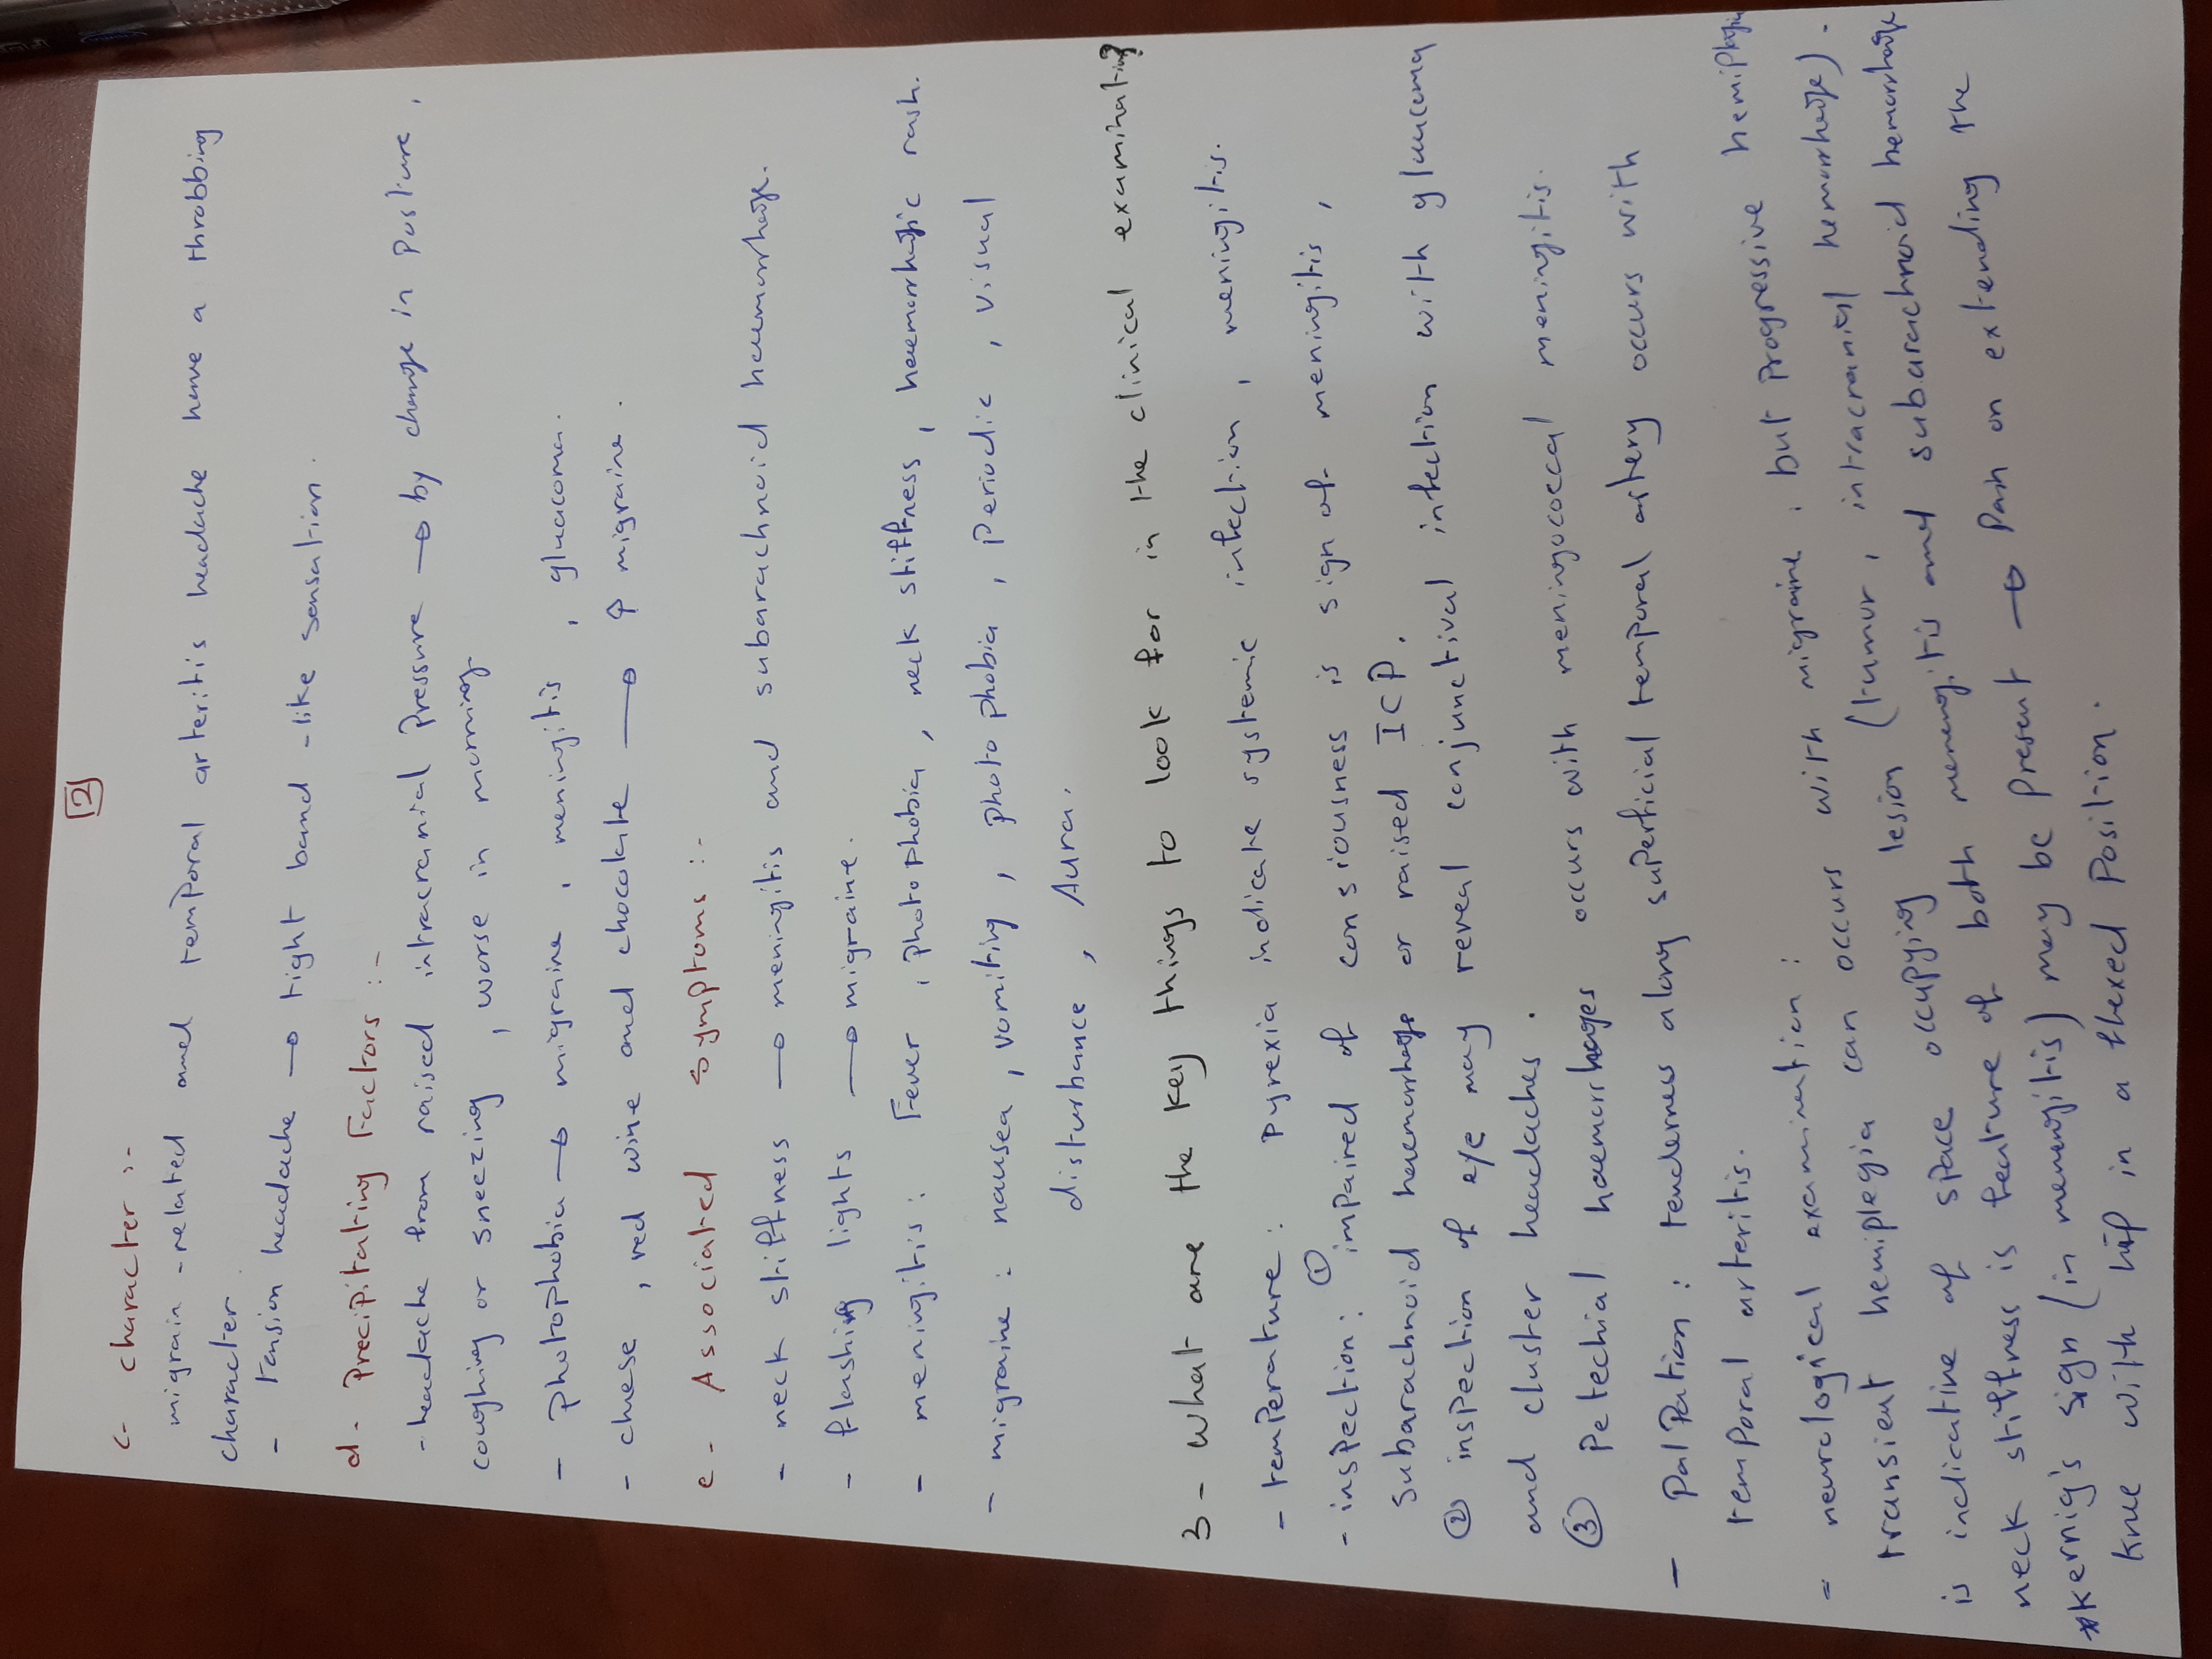 [2]
c- character :-
migrain - related and temporal arteritis headache have a throbbing
character
- tension headache → tight band - like sensation.
d- Precipitating Factors :-
- headache from raised intracranial Pressure → by change in Posture,
coughing or sneezing, worse in morning
- photophobia → migraine, meningitis, glucacoma.
- cheese, red wine and chocolate → ↑ migraine.
e- Associated symptoms :-
- neck stiffness → meningitis and subarachnoid haemorrhage.
- flashing lights → migraine.
- meningitis: Fever, photophobia, neck stiffness, haemorrhagic rash.
- migraine: nausea, vomiting, photophobia, Periodic, visual
disturbance, Aura.
3- what are the key things to look for in the clinical examinating?
- temperature: pyrexia indicate systemic infection, meningitis.
- inspection: ① impaired of consiousness is sign of meningitis,
subarachnoid haemorrhage or raised ICP.
② inspection of eye may reveal conjunctival infection with glucoma
and cluster headaches.
③ Petechial haemorrhages occurs with meningococcal meningitis.
- Palpation: tenderness along superficial temporal artery occurs with
temporal arteritis.
= neurological examination:
transient hemiplegia can occurs with migraine, but Progressive hemiplegia
is indicative of space occupying lesion (tumor, intracranial hemorrhage).
neck stiffness is feature of both menengitis and subarachnoid hemorrhage
*kernig's sign (in menengitis) may be present → Pain on extending the
knee with hip in a flexed Position.